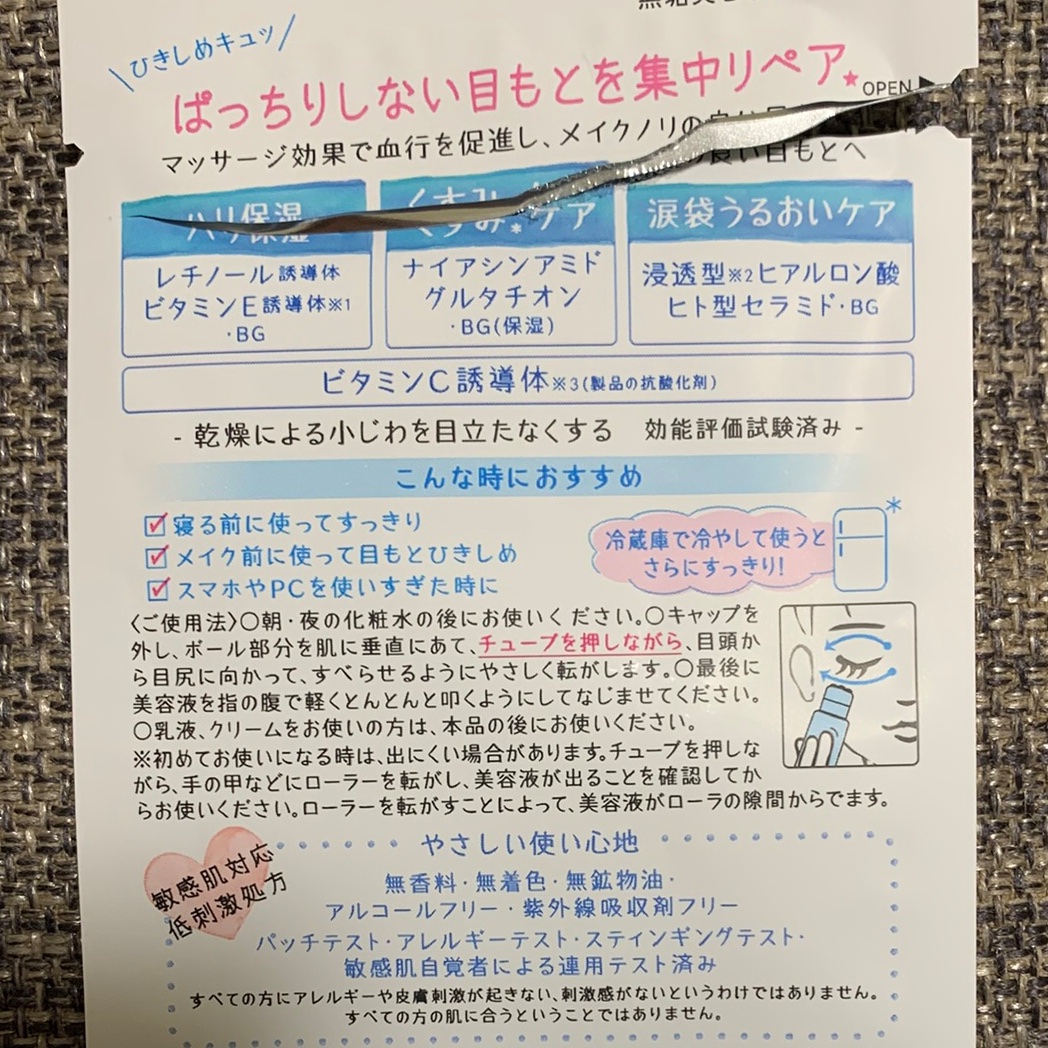 ひきしめキュッ
ぱっちりしない目もとを集中リペア
OPEN
マッサージ効果で血行を促進し、メイクノリの良い目もとへ
ハリ保湿
くすみ※ケア
涙袋うるおいケア
レチノール誘導体
ビタミンE誘導体※1
・BG
ナイアシンアミド
グルタチオン
・BG(保湿)
浸透型※2ヒアルロン酸
ヒト型セラミド・BG
ビタミンC誘導体※3(製品の抗酸化剤)
- 乾燥による小じわを目立たなくする 効能評価試験済み -
こんな時におすすめ
寝る前に使ってすっきり
メイク前に使って目もとひきしめ
スマホやPCを使いすぎた時に
冷蔵庫で冷やして使うと
さらにすっきり!
〈ご使用法〉○朝・夜の化粧水の後にお使いください。○キャップを
外し、ボール部分を肌に垂直にあて、チューブを押しながら、目頭か
ら目尻に向かって、すべらせるようにやさしく転がします。○最後に
美容液を指の腹で軽くとんとんと叩くようにしてなじませてください。
○乳液、クリームをお使いの方は、本品の後にお使いください。
※初めてお使いになる時は、出にくい場合があります。チューブを押しな
がら、手の甲などにローラーを転がし、美容液が出ることを確認してか
らお使いください。ローラーを転がすことによって、美容液がローラの隙間からでます。
敏感肌対応
低刺激処方
やさしい使い心地
無香料・無着色・無鉱物油・
アルコールフリー・紫外線吸収剤フリー
パッチテスト・アレルギーテスト・スティンギングテスト・
敏感肌自覚者による連用テスト済み
すべての方にアレルギーや皮膚刺激が起きない、刺激感がないというわけではありません。
すべての方の肌に合うということではありません。